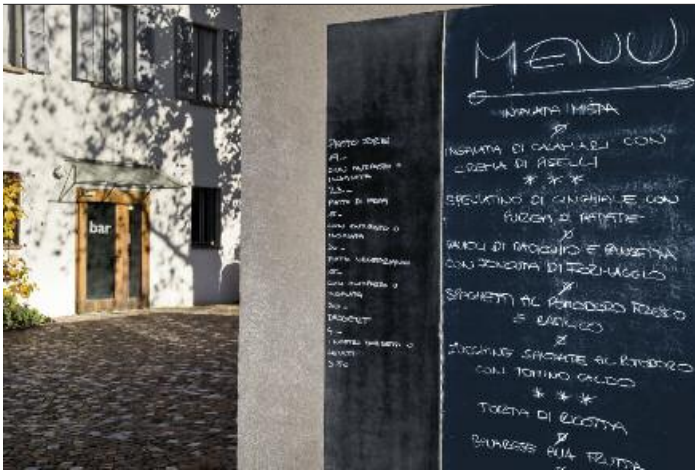 bar
PIATTO
19.-
CON ANTIPASTO O
INSALATA
23.-
PIATTO DI PASTA
CON ANTIPASTO O
INSALATA
20.-
PIATTO VEGETARIANO
CON ANTIPASTO O
INSALATA
DESSERT
MENU
INSALATA MISTA
INSALATA DI CALAMARI CON
CREMA DI PISELLI
***
SPEZZATINO DI CINGHIALE CON
PUREA DI PATATE
RAVIOLI DI RADICCHIO E PANCETTA
CON FONDUTA DI FORMAGGIO
SPAGHETTI AL POMODORO FRESCO
E BASILICO
ZUCCHINE SPADELLATE AL POMODORO
CON TOMINO CALDO
***
TORTA DI RICOTTA
BAVARESE ALLA FRUTTA